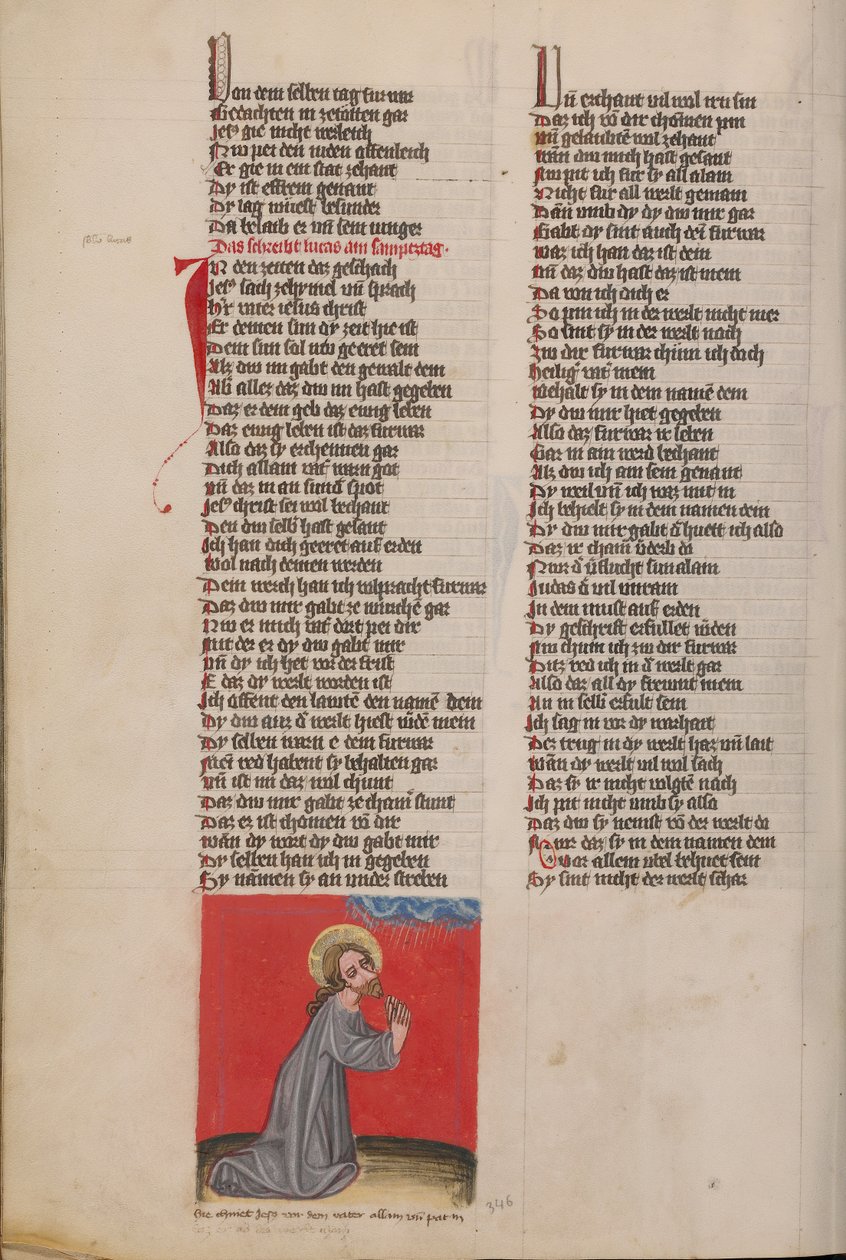 Von dem selben tag fur war
Gedachten in zetötten gar
Jesˢ gie nicht werleich
Nw pei den iuden offenleich
Er gie in ein stat zehant
Dy ist effrem genant
Dy lag wuest besunder
Da belaib er mit sein iunger
Das schreibt lucas am samptztag.
In den zeiten daz geschach
Jesˢ sach zehymel vn̄ sprach
vater iesus christ
Er deinen sun dy zeit hie ist
Dein sun sol nw geeret sein
Alz dw im gabt den gewalt dein
Vb̄ allez daz dw im hast gegeben
Daz er dem geb daz ewig leben
Daz ewig leben ist daz furwar
Also daz sy erchennen gar
Dich allain warn got
vn̄ daz in an sund spot
Jesˢ christ sei wol bechant
Den dw selb hast gesant
Ich han dich geeret auf erden
Wol nach deinen werden
Dein werch han ich volpracht furwar
Daz dw mir gabt ze wurchē gar
Nw er mich dort pei dir
Mit der er dy dw gabt mir
vn̄ dy ich het vor der frist
E daz dy werlt worden ist
Ich offent den lawtē den namē dein
Dy dw auz d̄ werlt hiest mein
Dy selben warn e dein furwar
Mein red habent sy behalten gar
vn̄ ist in daz wol chunt
Daz dw mir gabt ze stunt
Daz ez ist chomen vō dir
Wan dy wort dy dw gabt mir
Dy selben han ich in gegeben
Sy namen sy an under streben
Hie chniet Jesˢ vor dem vater allain vn̄ pat in
Vn̄ erchant vil wol sin
Daz ich vō dir chomen pin
vn̄ gelaubtē wol zehant
Wan dw mich hast gesant
Nw pit ich fur sy all alain
Nicht fur all werlt gemain
Dan̄ umb dy dy dw mir gar
Gabt dy sint auch dein furwar
Waz ich han daz ist dein
vn̄ daz dw hast daz ist mein
Da von ich dich er
So pin ich in der werlt nicht mer
So sint sy in der werlt noch
Zw dir furwar chum ich doch
Heilig mein
Behalt sy in dem namē dein
Dy dw mir hiet gegeben
Also daz furwar ir leben
Gar in ain werd bechant
Alz dw ich ain sein genant
Dy weil vn̄ ich waz mit in
Ich behielt sy in dem namen dein
Dy dw mir gabt huett ich also
Daz ir chain da
Nur sun alain
Judas vil unrain
In dem must auf erden
Dy geschrift erfullet
Nw chum ich zw dir furwar
Ditz red ich in d̄ werlt gar
Also daz all dy frewnt mein
An in selb erfult sein
Ich sag in vor dy warhait
Der trug in dy werlt haz vn̄ lait
Wan dy werlt vil wol sach
Daz sy ir nicht volgtē nach
Ich pit nicht umb sy also
Daz dw sy nemst vō der werlt do
Nur daz sy in dem namen dein
Vor allem ubel behuet sein
Sy sint nicht der werlt schar
346